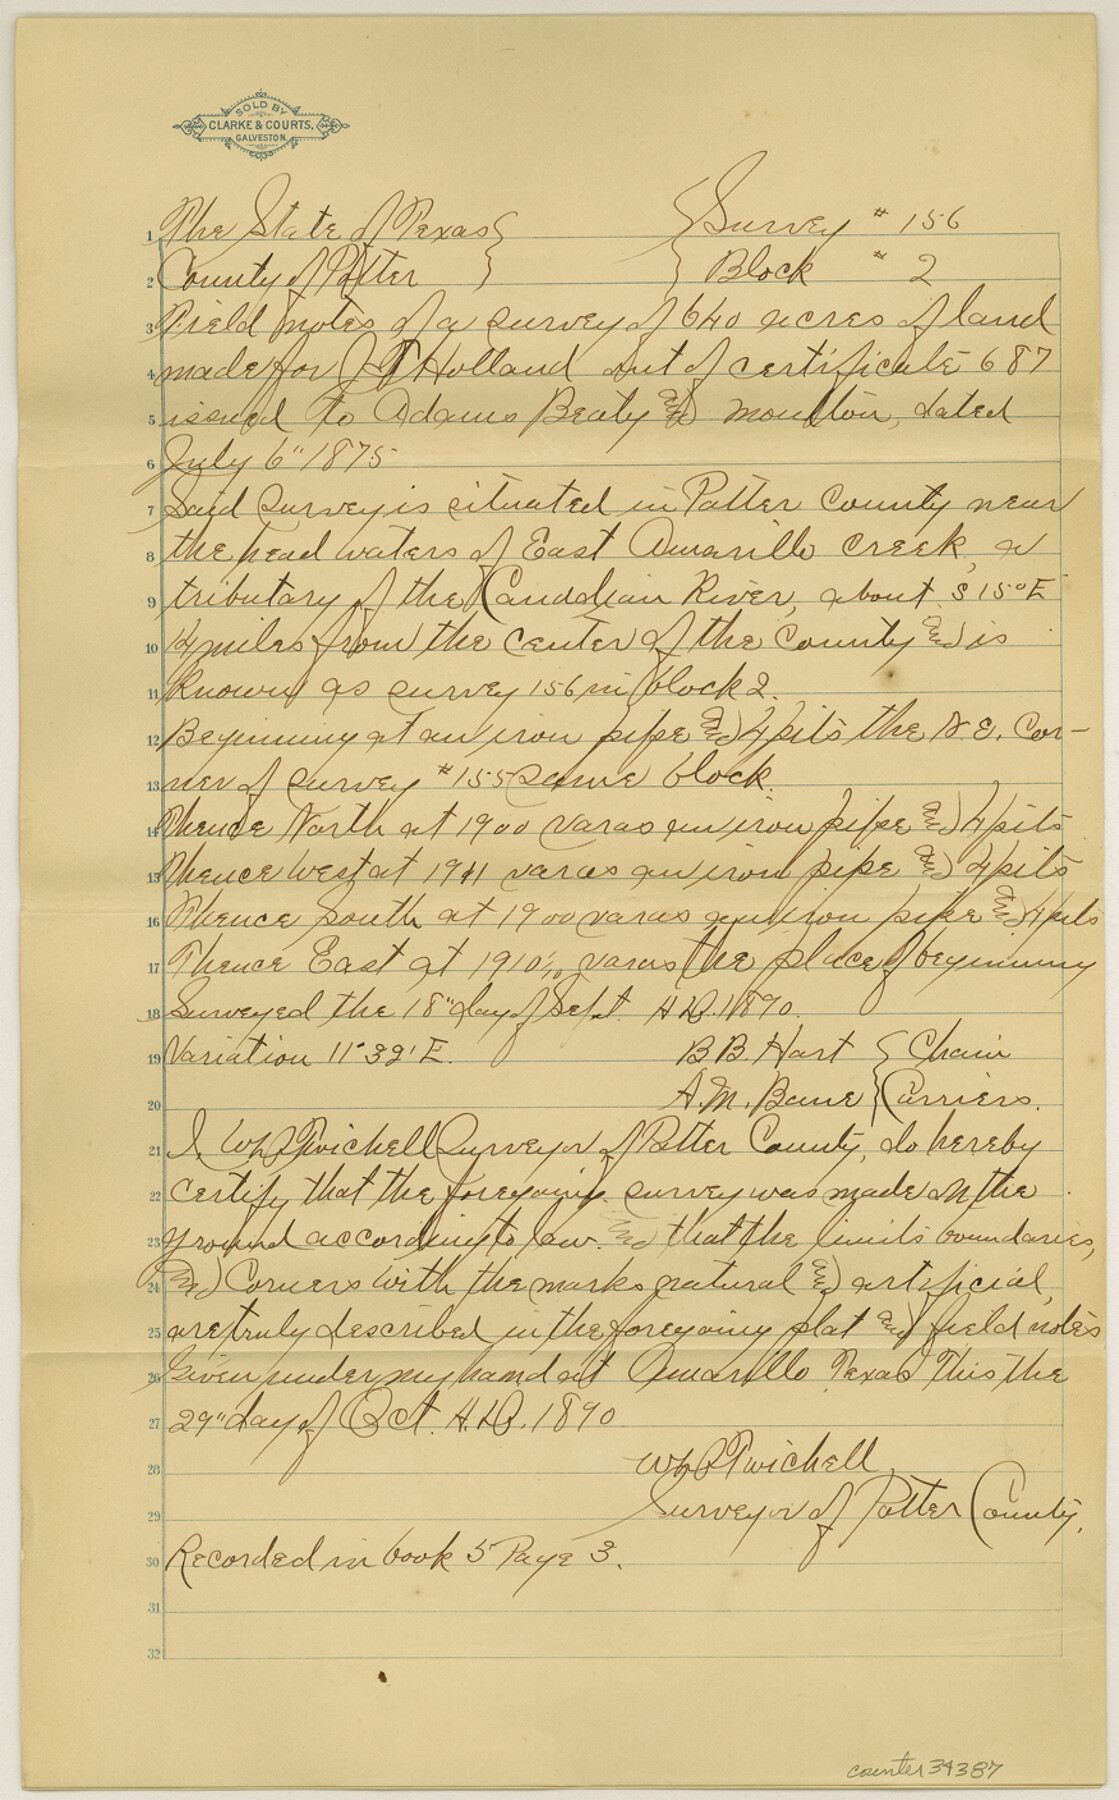 SOLD BY
CLARKE & COURTS,
GALVESTON.
1 The State of Texas } { Survey # 156
2 County of Potter } { Block # 2
3 Field notes of a survey of 640 acres of land
4 made for Holland out of certificate 687
5 issued to Adams Beaty & Moulton, dated
6 July 6" 1875
7 Said survey is situated in Potter County near
8 the head waters of East Amarillo creek, a
9 tributary of the Canadian River, about S 15° E
10 miles from the center of the County & is
11 known as survey 156 in block 2.
12 Beginning at an iron pipe & 4 pits the N.E. Cor-
13 ner of survey # 155 same block.
14 Thence North at 1900 varas an iron pipe & 4 pits
15 Thence West at 1911 varas an iron pipe & 4 pits
16 Thence South at 1900 varas an iron pipe & 4 pits
17 Thence East at varas the place of beginning
18 Surveyed the 18" day of Sept. A.D. 1890.
19 Variation 11° 32' E. B.B. Hart { Chain
20 A.M. Bane { Carriers.
21 I, W.D. Twichell Surveyor of Potter County, do hereby
22 certify that the foregoing survey was made on the
23 ground according to law. & that the limits boundaries,
24 & Corners with the marks natural & artificial,
25 are truly described in the foregoing plat & field notes
26 Given under my hand at Amarillo Texas This the
27 29" day of Oct. A.D. 1890
28 W.D. Twichell
29 Surveyor of Potter County,
30 Recorded in book 5 Page 3.
31
32
counter 34387